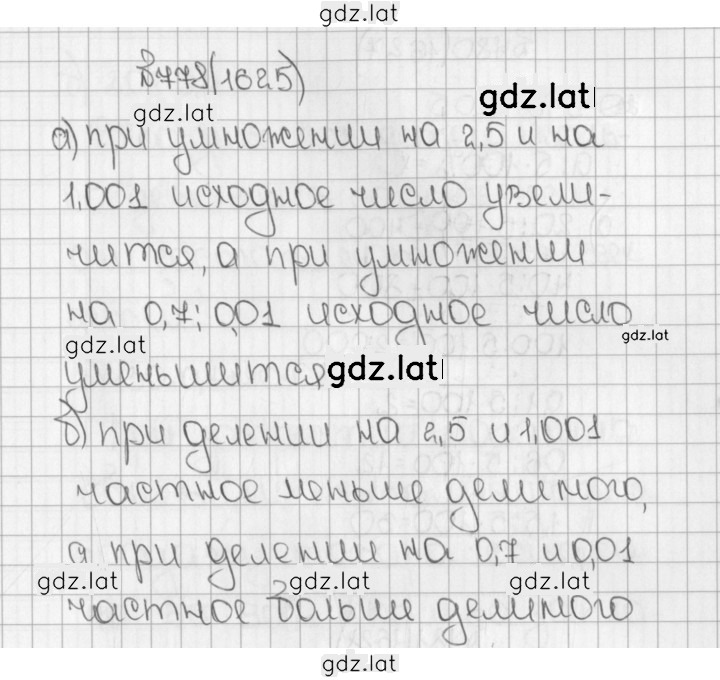 gdz.lat
№778(1625)
gdz.lat
gdz.lat
а) при умножении на 2,5 и на
1,001 исходное число увели-
чится, а при умножении
на 0,7; 0,01 исходное число
gdz.lat
gdz.lat
уменьшится
gdz.lat
б) при делении на 2,5 и 1,001
частное меньше делимого,
а при делении на 0,7 и 0,01
gdz.lat gdz.lat gdz.lat
частное больше делимого
gdz.lat